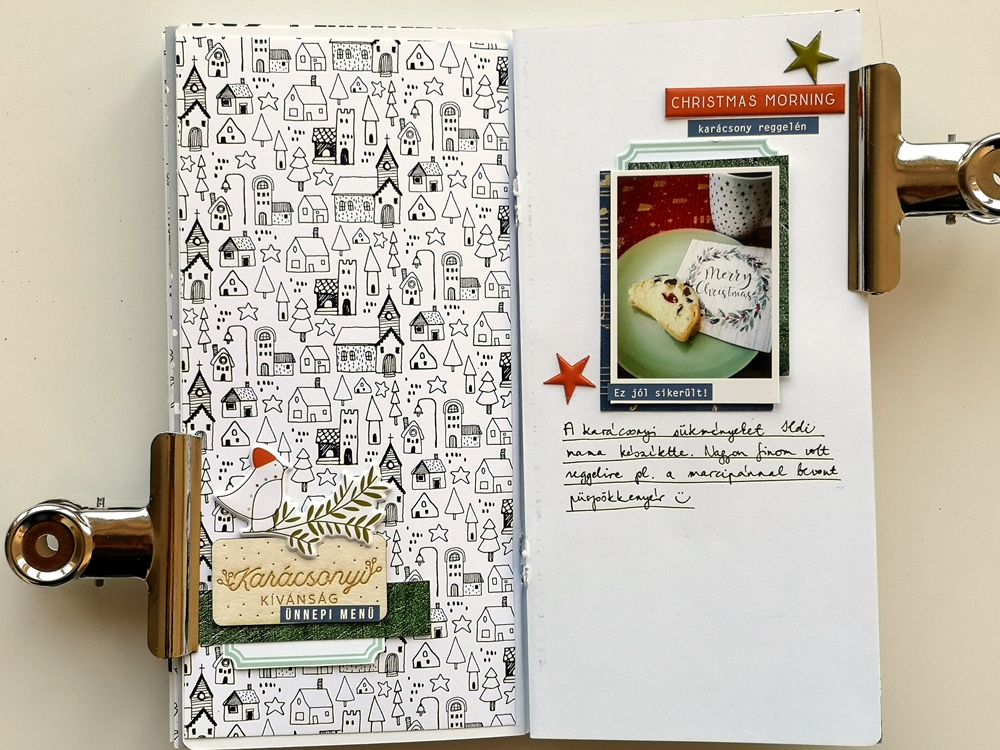 Karácsonyi
KÍVÁNSÁG
ÜNNEPI MENÜ
CHRISTMAS MORNING
karácsony reggelén
Merry
Christmas
Ez jól sikerült!
A karácsonyi sükményeket Ildi
mama készítette. Nagyon finom volt
reggelire pl. a marcipánnal bevont
püspökkenyér